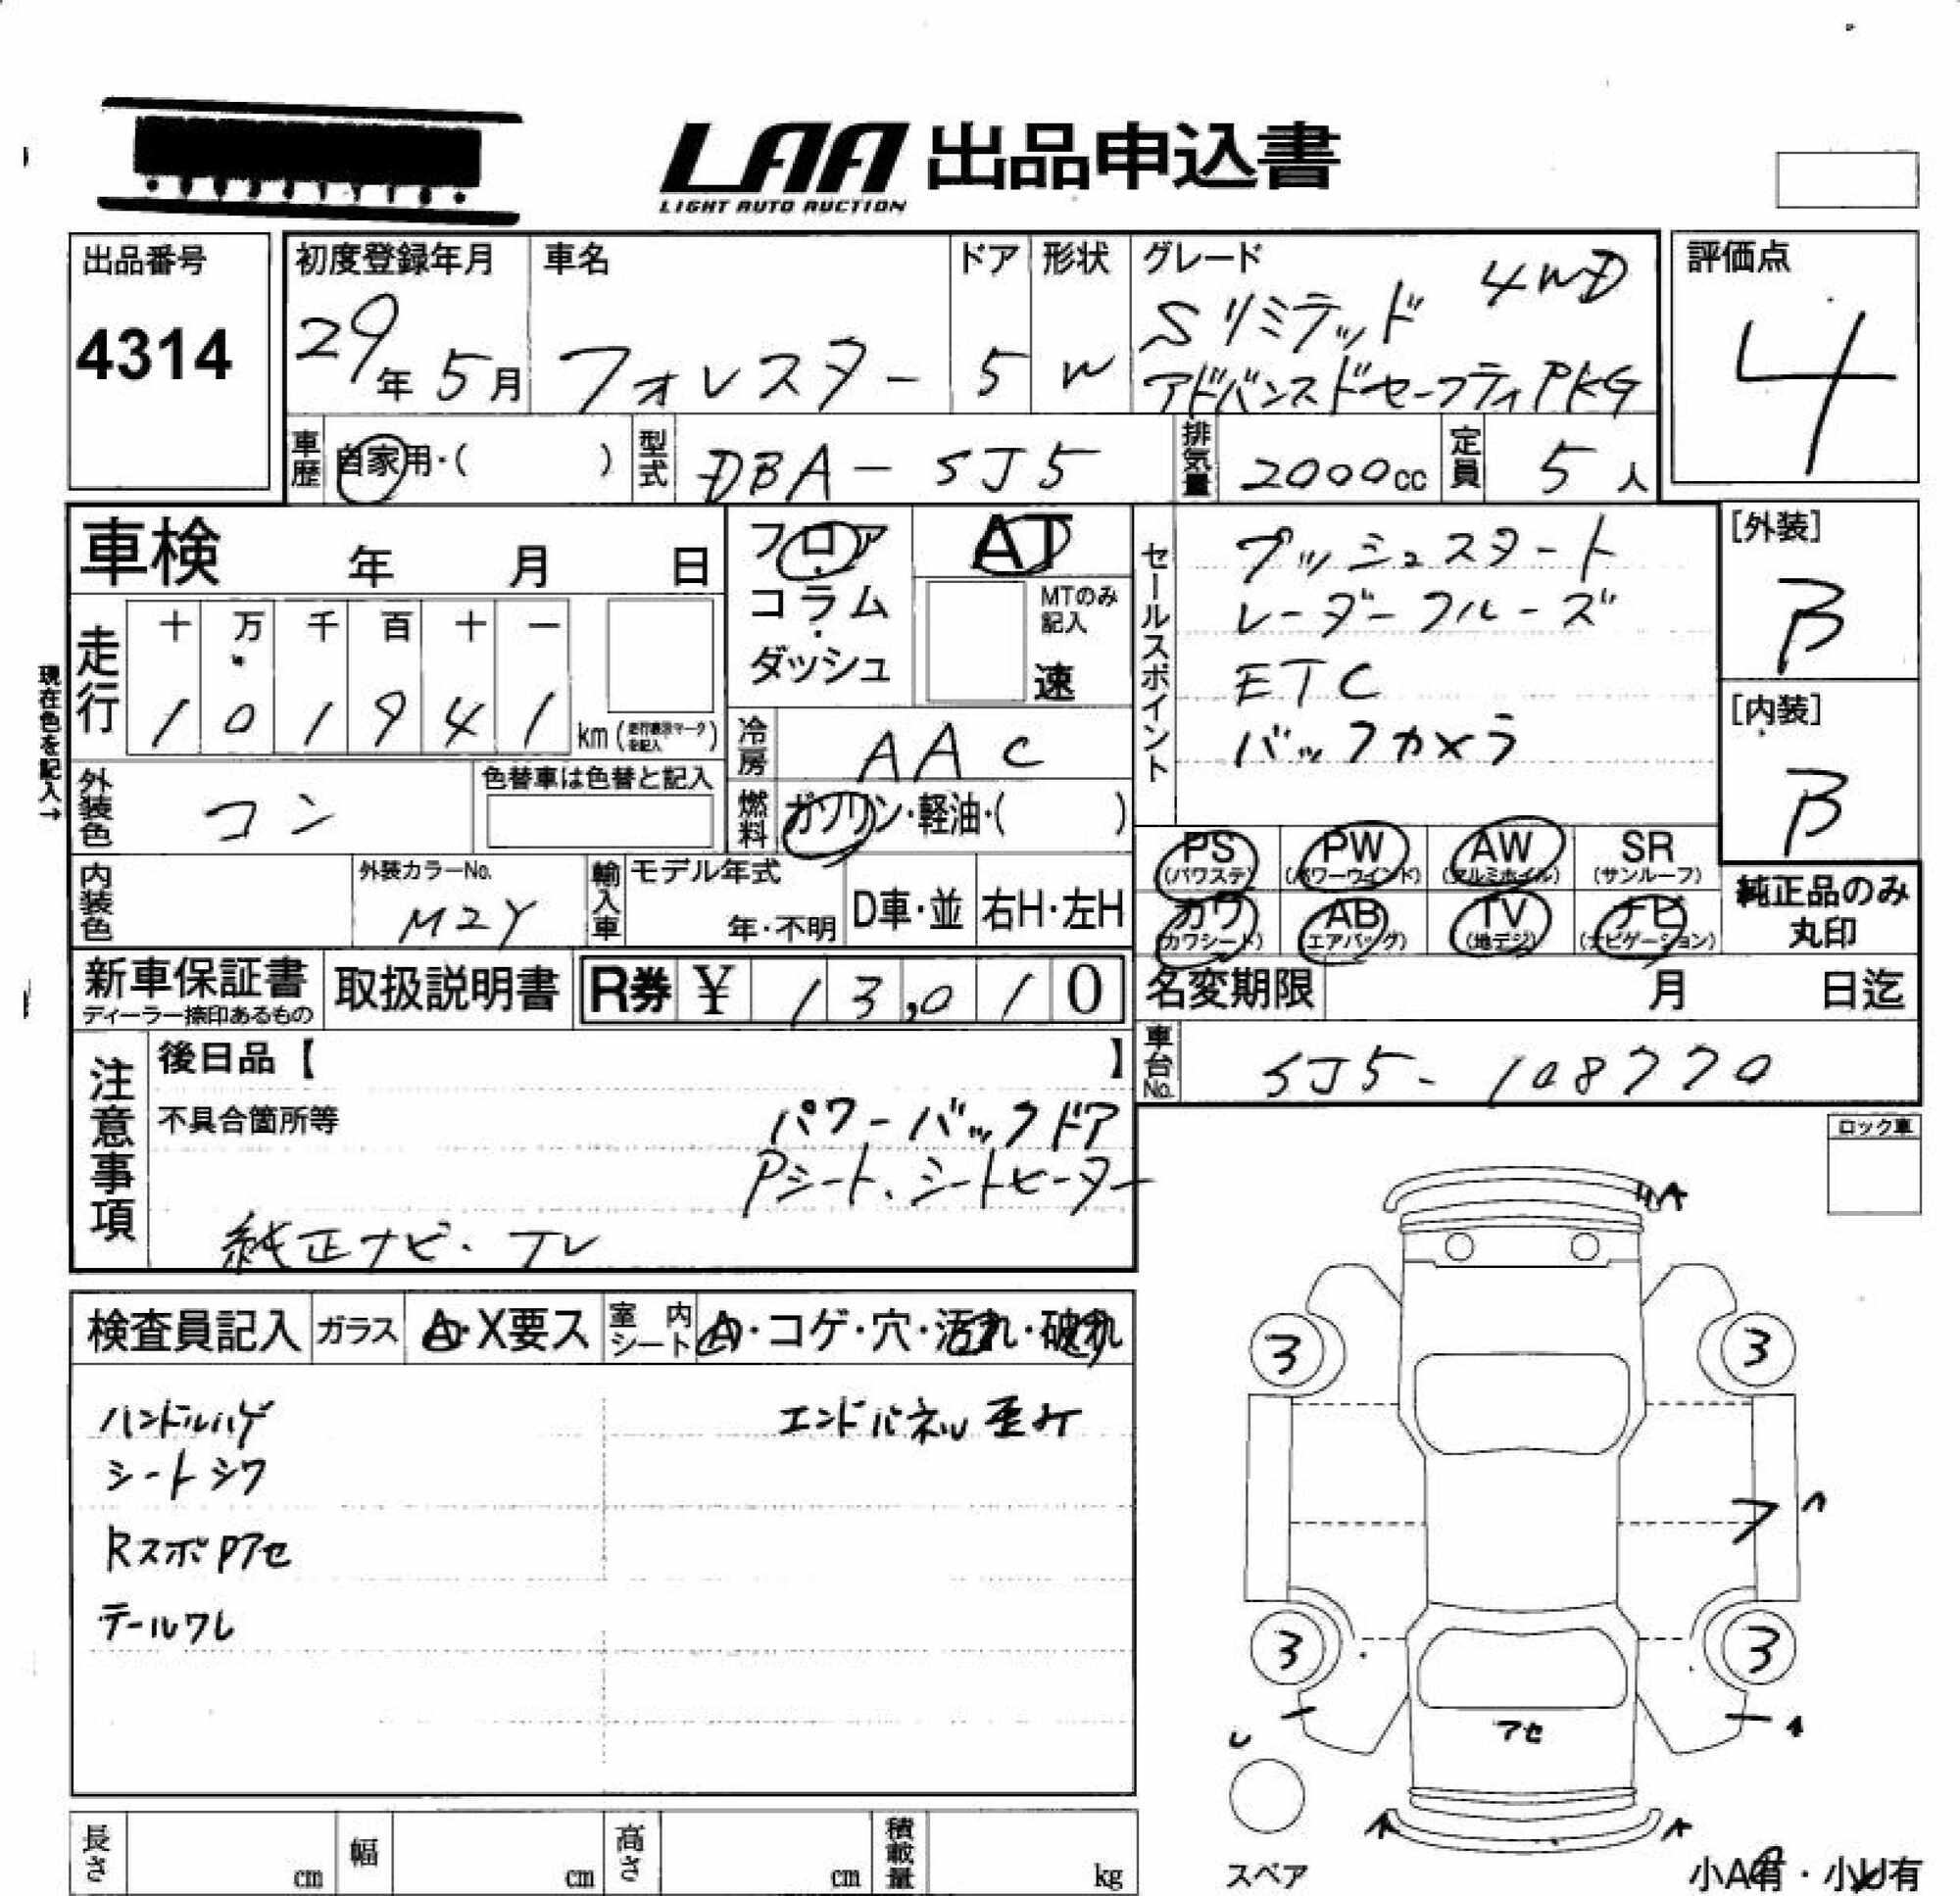 LAA 出品申込書
LIGHT AUTO AUCTION
出品番号
4314
初度登録年月
29年 5月
車名
フォレスター
ドア
5
形状
W
グレード
Sリミテッド 4WD
アドバンスドセーフティPKG
評価点
4
車歴 自家用・( )
型式 DBA-SJ5
排気量 2000cc
定員 5人
車検 年 月 日
フロア
コラム
・
ダッシュ
AT
MTのみ
記入
速
セールスポイント
プッシュスタート
レーダークルーズ
ETC
バックカメラ
[外装]
B
[内装]
B
現在色を記入→
走行
十 万 千 百 十 一
1 0 1 9 4 1 km
冷房 AAC
燃料 ガソリン・軽油・( )
外装色 コン
色替車は色替と記入
内装色
外装カラーNo.
M2Y
輸入車
モデル年式
年・不明
D車・並
右H・左H
PS
(パワステ)
PW
(パワーウインド)
AW
(アルミホイル)
SR
(サンルーフ)
カワ
(カワシート)
AB
(エアバッグ)
TV
(地デジ)
ナビ
(ナビゲーション)
純正品のみ
丸印
新車保証書
ディーラー捺印あるもの
取扱説明書
R券 ¥ 13,010
名変期限 月 日迄
車台No. SJ5-108770
注意事項
後日品【 】
不具合箇所等
パワーバックドア
Pシート、シートヒーター
純正ナビ・TV
ロック車
検査員記入
ガラス
A・X要ス
室内シート
A・コゲ・穴・汚れ・破れ
ハンドルハゲ
シートシワ
RスポPアセ
テールワレ
エンドパネル歪み
A
3
3
フ
3
3
アセ
スペア
小A有・小U有
長さ cm
幅 cm
高さ cm
積載量 kg